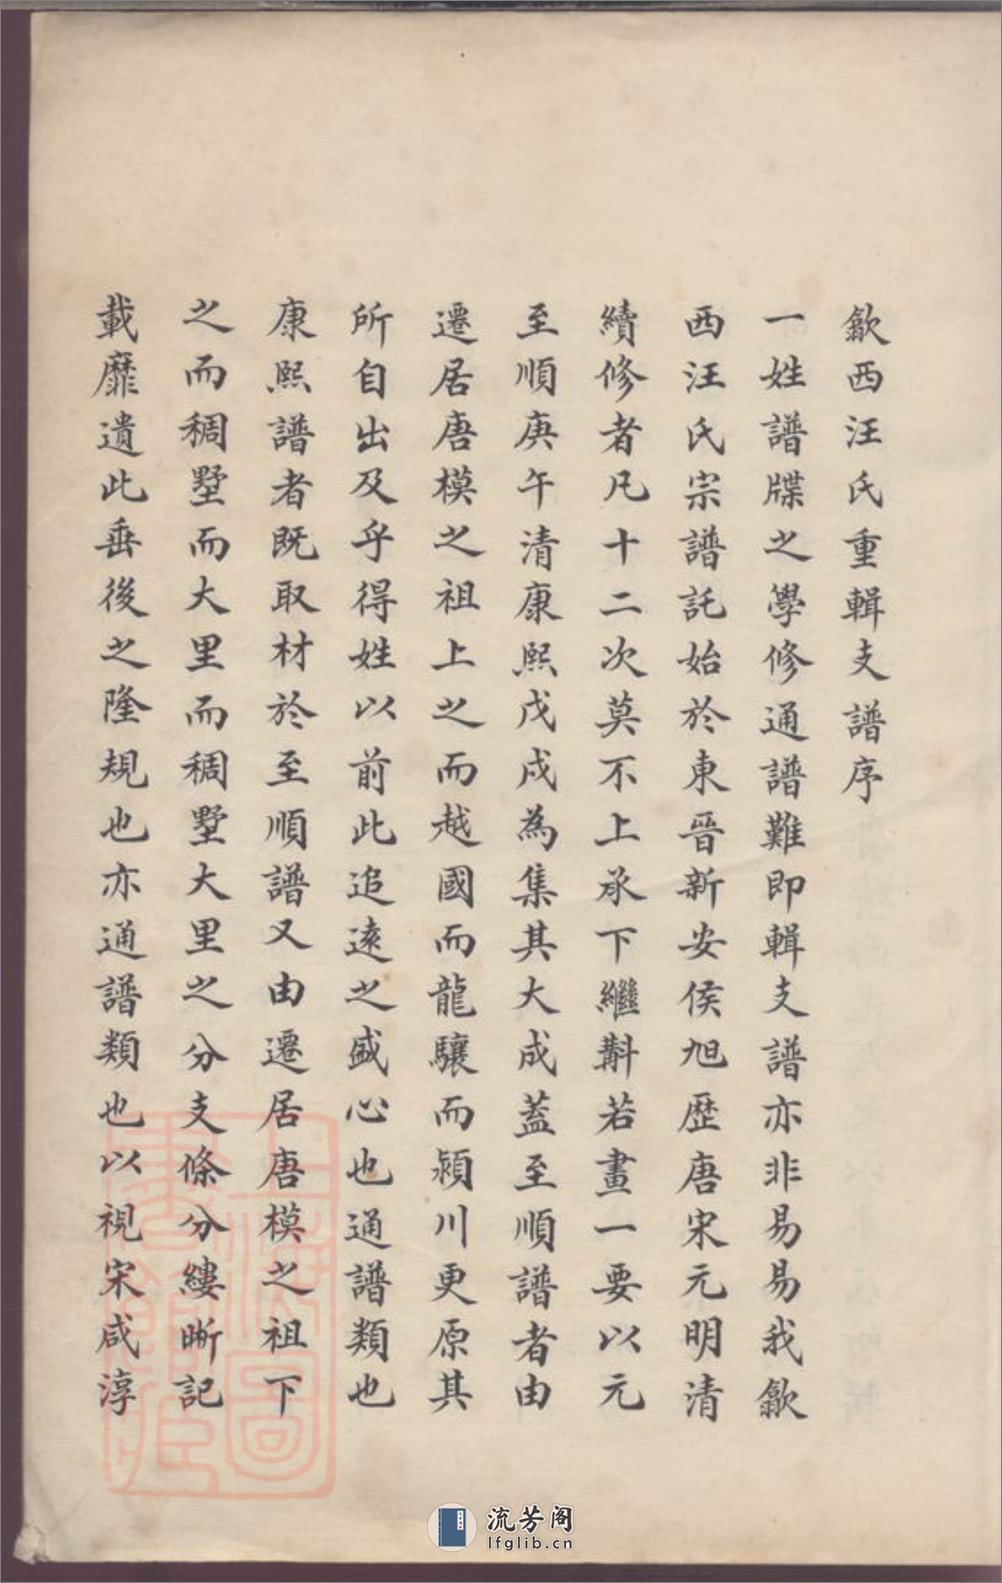 歙西汪氏重輯支譜序
一姓譜牒之學修通譜難即輯支譜亦非易易我歙
西汪氏宗譜託始於東晉新安侯旭歷唐宋元明清
續修者凡十二次莫不上承下繼斠若畫一要以元
至順庚午清康熙戊戌為集其大成蓋至順譜者由
遷居唐模之祖上之而越國而龍驤而潁川更原其
所自出及乎得姓以前此追遠之盛心也通譜類也
康熙譜者既取材於至順譜又由遷居唐模之祖下
之而稠墅而大里而稠墅大里之分支條分縷晰記
載靡遺此垂後之隆規也亦通譜類也以視宋咸淳
上海圖書館藏
流芳阁
lfglib.cn